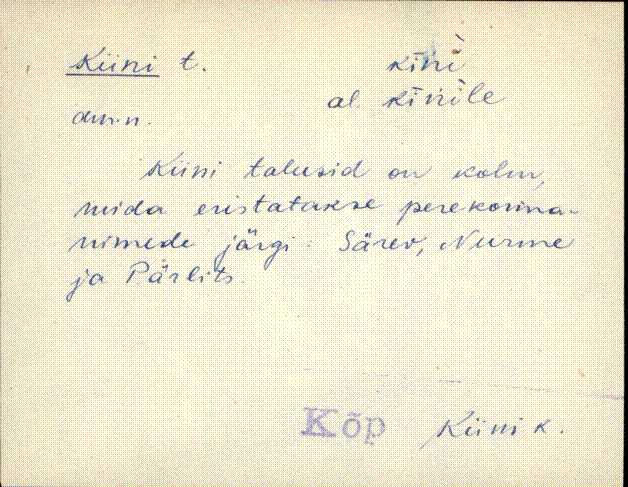 Kiini t. kīnì̬
al. kīnile
dms.n.
Kiini talusid on kolm,
mida eristatakse perekonna-
nimede järgi: Särev, Nurme
ja Pärlits.
Kõp Kiini k.